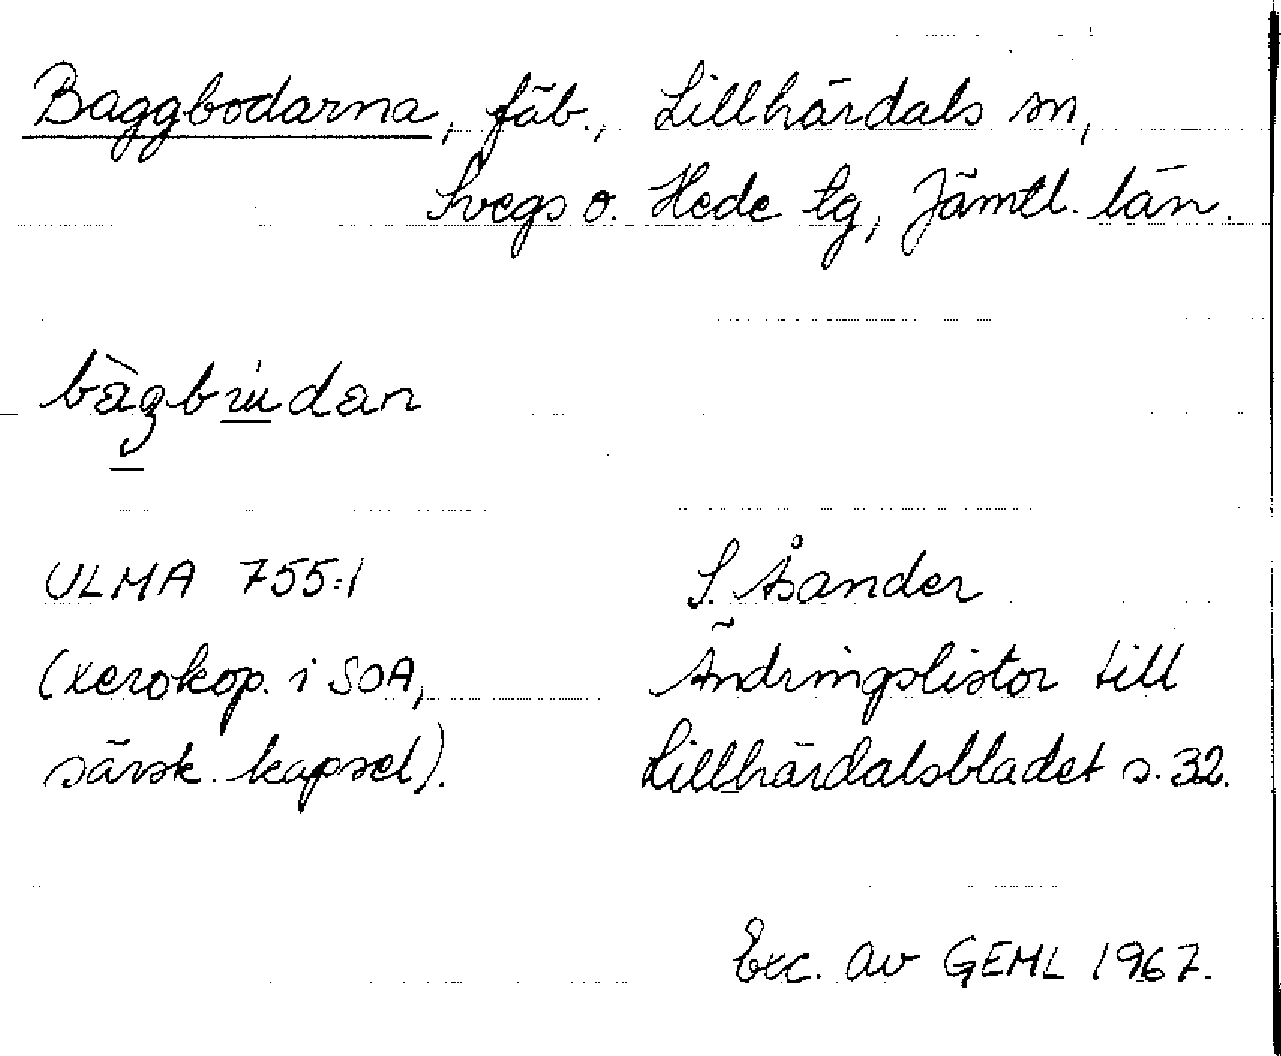 Baggbodarna, fäb., Lillhärdals sn,
Svegs o. Hede tg, Jämtl. län.
ULMA 755:1
S. Åsander
(xerokop. i SOA,
Ändringslistor till
särsk. kapsel).
Lillhärdalsbladet s. 32.
Exc. av GEML 1967.